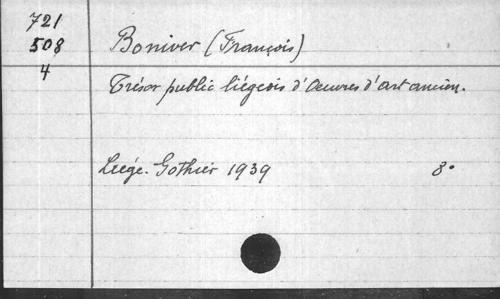 721
508
4
Boniver (François)
Trésor public liégeois d'Oeuvres d'art ancien.
Liége. Gothier 1939 8°